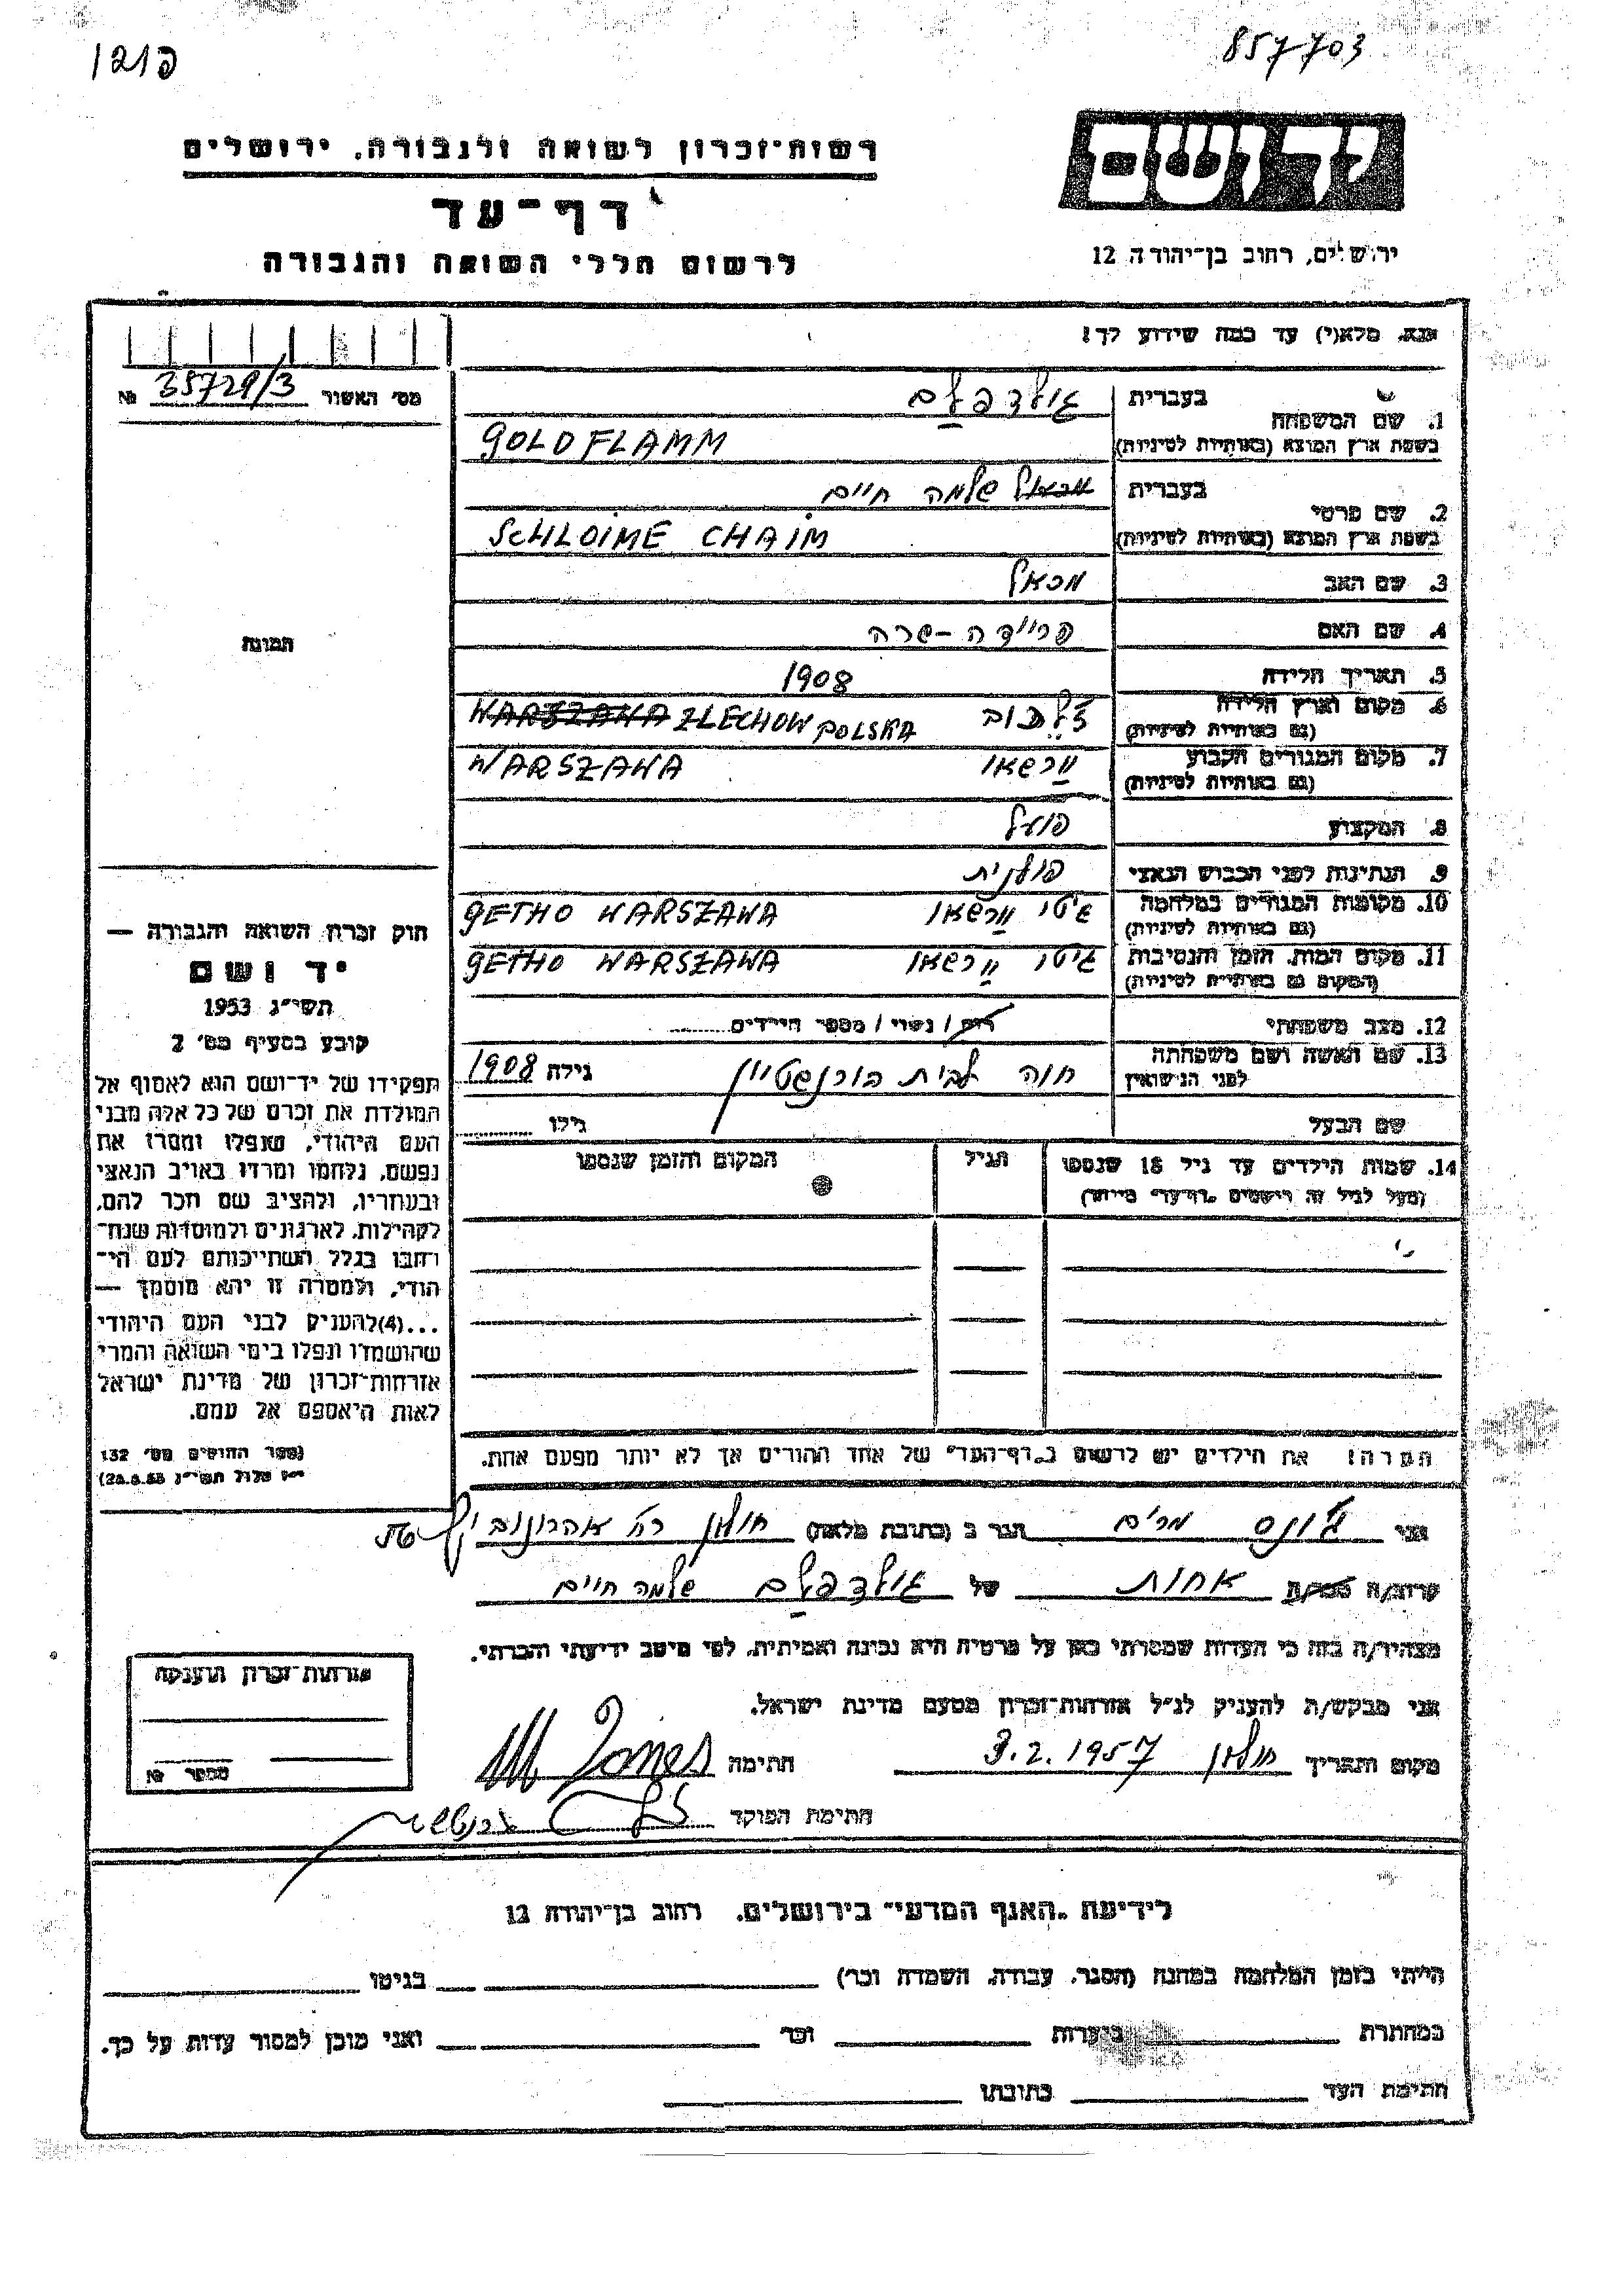 פ121
857703
יד ושם
רשות־זכרון לשואה ולגבורה, ירושלים
דף־עד
לרשום חללי השואה והגבורה
ירושלים, רחוב בן־יהודה 12
אנא, מלא(י) עד כמה שידוע לך!
מס׳ האשור 35729/3 №
תמונה
1. שם המשפחה
בעברית גולדפלם
בשפת ארץ המוצא (באותיות לטיניות) GOLDFLAMM
2. שם פרטי
בעברית מכאל שלמה חיים
בשפת ארץ המוצא (באותיות לטיניות) SCHLOIME CHAIM
3. שם האב מכאל
4. שם האם פריידה-שרה
5. תאריך הלידה 1908
6. מקום וארץ הלידה (גם באותיות לטיניות) זלכוב WARSZAWA ZLECHOW POLSKA
7. מקום המגורים הקבוע (גם באותיות לטיניות) ורשאו WARSZAWA
8. המקצוע פועל
9. הנתינות לפני הכבוש הנאצי פולנית
10. מקומות המגורים במלחמה (גם באותיות לטיניות) גיטו ורשאו GETHO WARSZAWA
11. מקום המות, הזמן והנסיבות (המקום גם באותיות לטיניות) גיטו ורשאו GETHO WARSZAWA
12. מצב משפחתי רווק / נשוי / מספר הילדים
13. שם האשה ושם משפחתה לפני הנישואין חוה לבית בורנשטיין גילה 1908
שם הבעל גילו
14. שמות הילדים עד גיל 18 שנספו
(מעל לגיל זה רושמים "דף־עד" מיוחד)
הגיל
המקום והזמן שנספו
הערה! את הילדים יש לרשום ב"דף־העד" של אחד ההורים אך לא יותר מפעם אחת.
חוק זכרון השואה והגבורה —
יד ושם
תשי"ג 1953
קובע בסעיף מס׳ 2
תפקידו של יד־ושם הוא לאסוף אל
המולדת את זכרם של כל אלה מבני
העם היהודי, שנפלו ומסרו את
נפשם, נלחמו ומרדו באויב הנאצי
ובעוזריו, ולהציב שם וזכר להם,
לקהילות, לארגונים ולמוסדות שנח־
רבו בגלל השתייכותם לעם הי־
הודי, ולמטרה זו יהא מוסמך —
...(4) להעניק לבני העם היהודי
שהושמדו ונפלו בימי השואה והמרי
אזרחות־זכרון של מדינת ישראל
לאות היאספם אל עמם.
(ספר החוקים מס׳ 132
י"ז אלול תשי"ג 28.8.53)
אני ג׳ונס מרים הגר ב (כתובת מלאה) חולון רח׳ אהרונוביץ
קרוב/ה אחות של גולדפלם שלמה חיים
מצהיר/ה בזה כי העדות שמסרתי כאן על פרטיה היא נכונה ואמיתית, לפי מיטב ידיעתי והכרתי.
אני מבקש/ת להעניק לנ"ל אזרחות־זכרון מטעם מדינת ישראל.
מקום ותאריך חולון 3.2.1957 חתימה M Jones
חתימת הפוקד
אזרחות־זכרון הוענקה
מספר №
לידיעת "האגף המדעי" בירושלים, רחוב בן־יהודה 12
הייתי בזמן המלחמה במחנה (הסגר, עבודה, השמדה וכו׳) בגיטו
במחתרת ביערות וכו׳ ואני מוכן למסור עדות על כך.
חתימת העד כתובתו